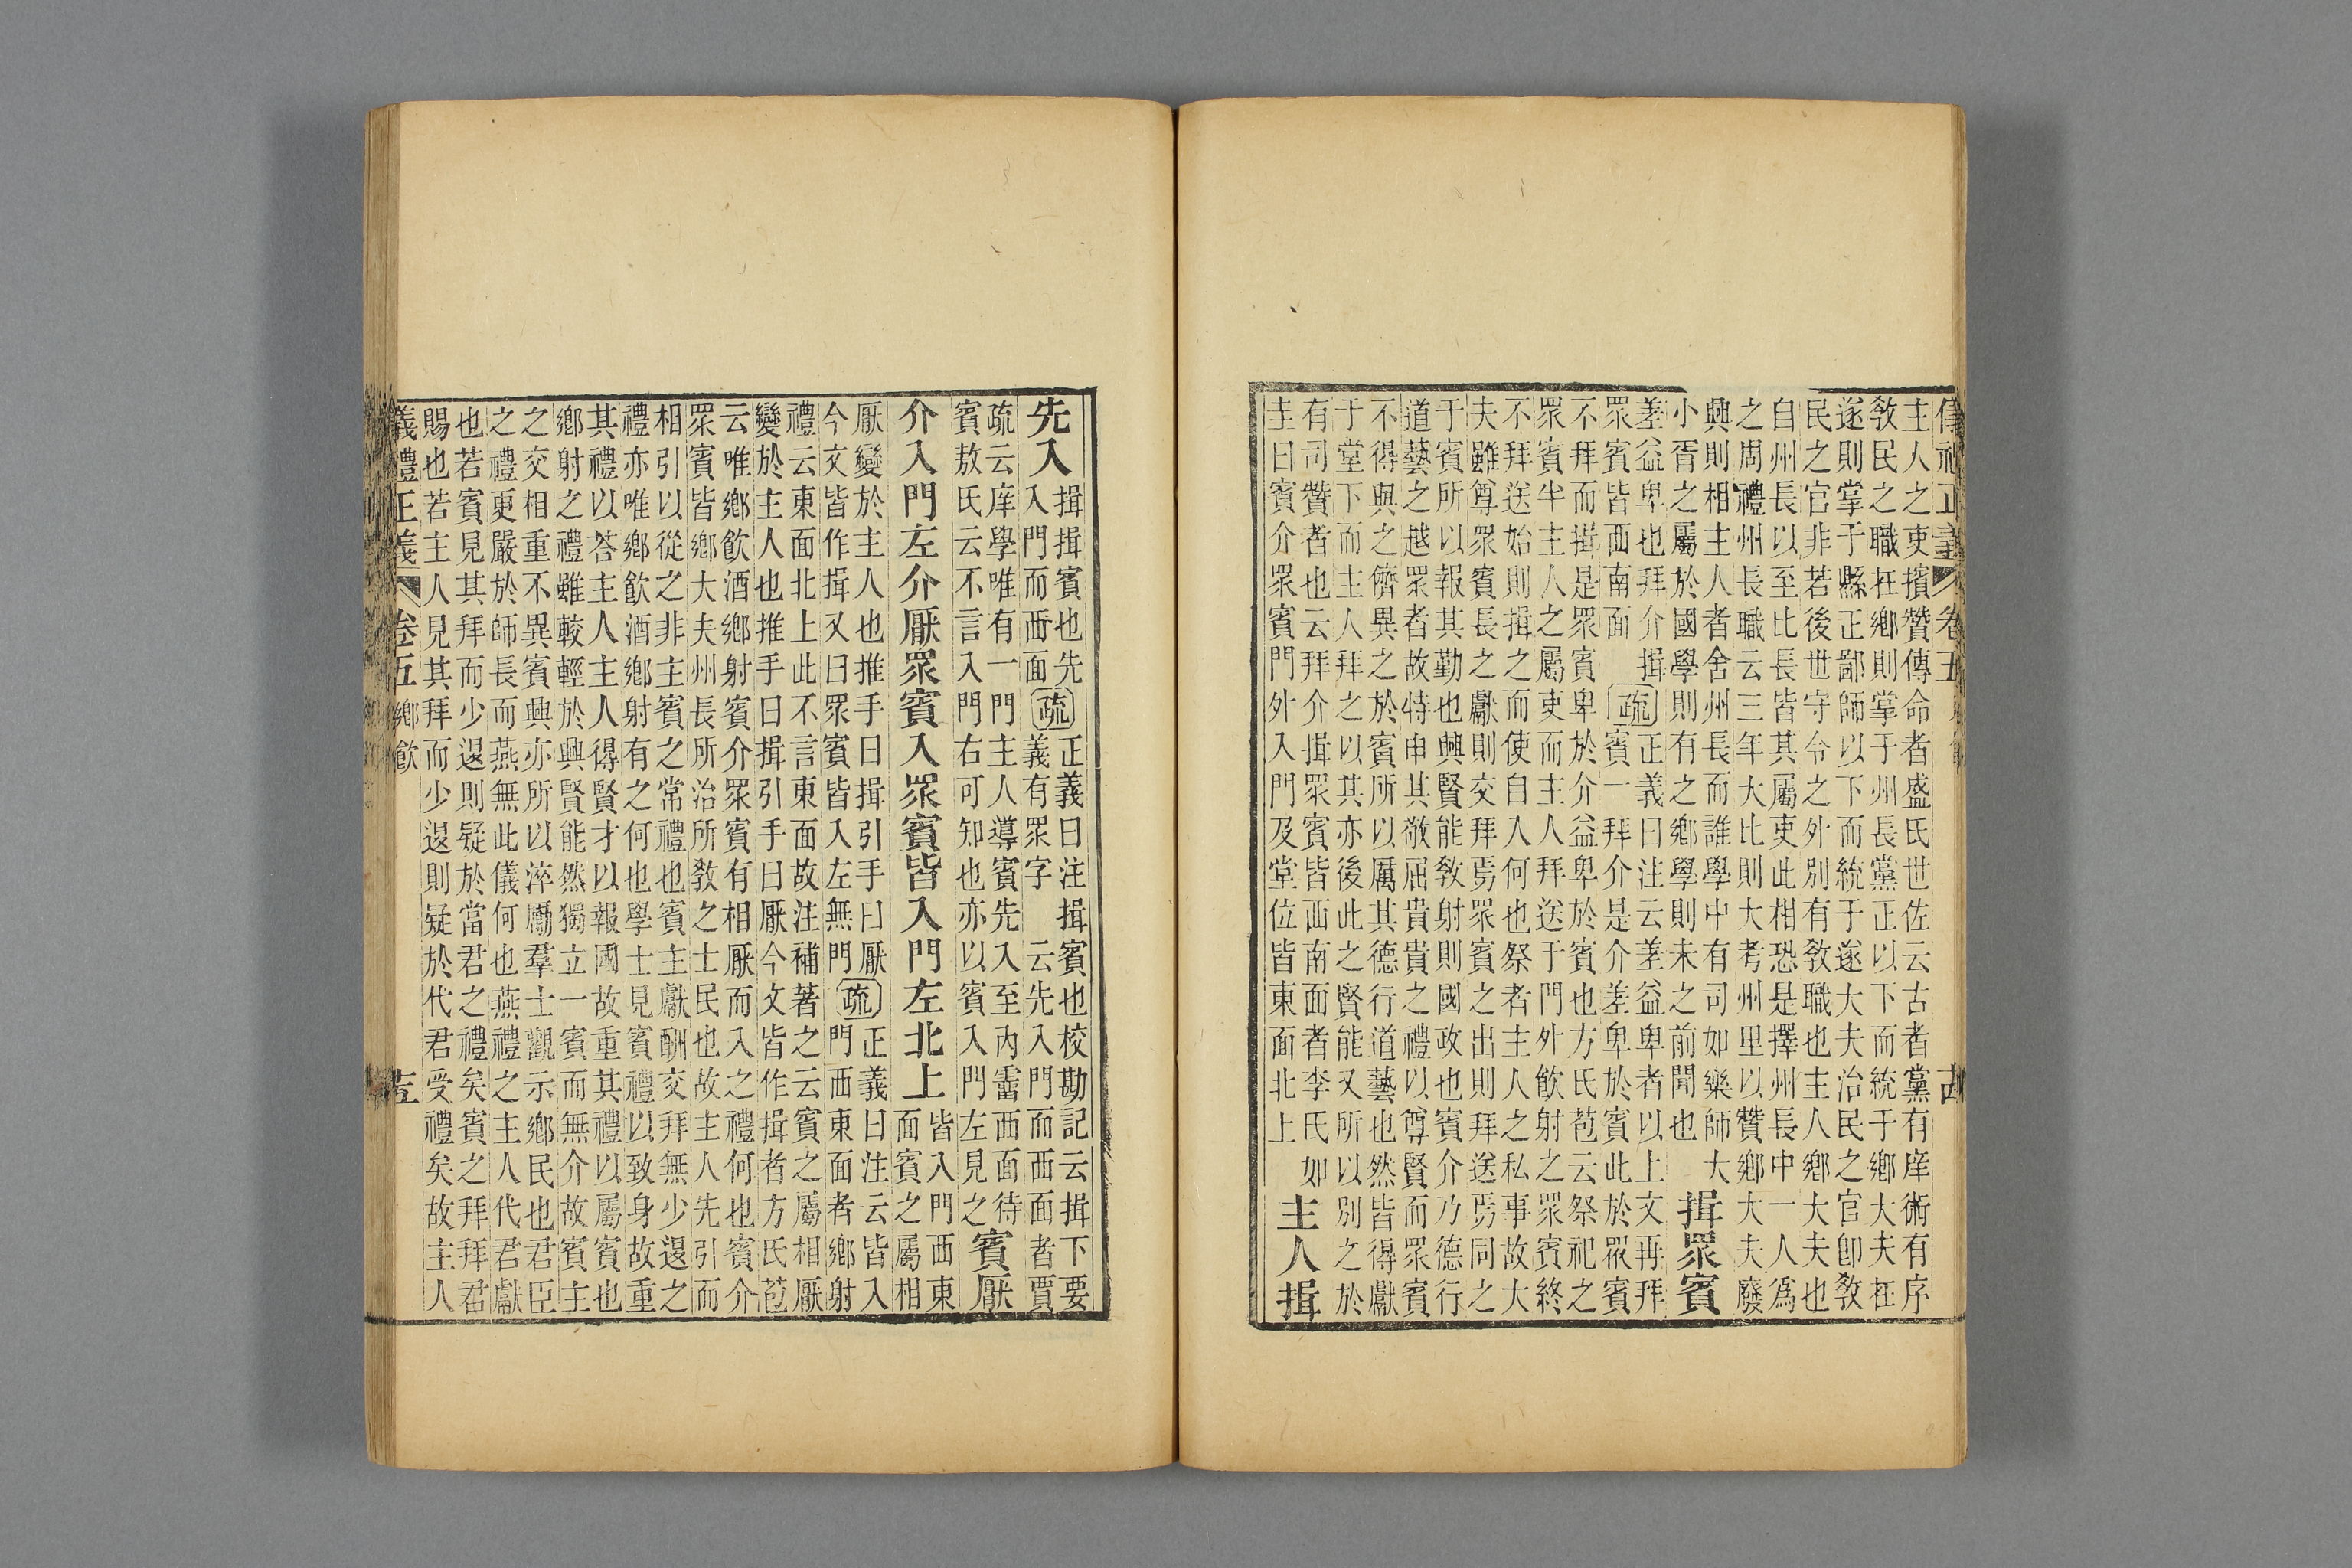 主人之吏擯贊傳命者盛氏世佐云古者黨有庠術有序
敎民之職在鄉則掌于州長黨正以下而統于鄉大夫在
遂則掌于縣正鄙師以下而統于遂大夫治民之官卽敎
民之官非若後世守令之外別有敎職也主人鄉大夫也
自州長以至比長皆其屬吏此相恐是擇州長中一人爲
之周禮州長職云三年大比則大考州里以贊鄉大夫廢
興則相主人者舍州長而誰學中有司如樂師大
小胥之屬於國學則有之鄉學則未之前聞也
揖眾賓
差益卑也拜介揖
眾賓皆西南面
疏
正義曰注云差益卑者以上文再拜
賓一拜介是介差卑於賓此於眾賓
不拜而揖是眾賓卑於介益卑於賓也方氏苞云祭祀之
眾賓半主人之屬吏而主人拜送于門外飲射之眾賓終
不拜送始則揖之而使自入何也祭者主人之私事故大
夫雖尊眾賓長之獻則交拜焉眾賓之出則拜送焉同之
于賓所以報其勤也興賢能敎射則國政也賓介乃德行
道藝之越眾者故特申其敬屈貴貴之禮以尊賢而眾賓
不得與之儕異之於賓所以厲其德行道藝也然皆得獻
于堂下而主人拜之以其亦後此之賢能又所以別之於
有司贊者也云拜介揖眾賓皆西南面者李氏如
圭曰賓介眾賓門外入門及堂位皆東面北上
主人揖
先入
揖揖賓也先
入門而西面
疏
正義曰注揖賓也校勘記云揖下要
義有眾字 云先入門而西面者賈
疏云庠學唯有一門主人導賓先入至內霤西面待
賓敖氏云不言入門右可知也亦以賓入門左見之
賓厭
介入門左介厭眾賓入眾賓皆入門左北上
皆入門西東
面賓之屬相
厭變於主人也推手曰揖引手曰厭
今文皆作揖又曰眾賓皆入左無門
疏
正義曰注云皆入
門西東面者鄉射
禮云東面北上此不言東面故注補著之云賓之屬相厭
變於主人也推手曰揖引手曰厭今文皆作揖者方氏苞
云唯鄉飲酒鄉射賓介眾賓有相厭而入之禮何也賓介
眾賓皆鄉大夫州長所治所敎之士民也故主人先引而
相引以從之非主賓之常禮也賓主獻酬交拜無少退之
禮亦唯鄉飲酒鄉射有之何也學士見賓禮以致身故重
其禮以答主人主人得賢才以報國故重其禮以屬賓也
鄉射之禮雖較輕於興賢能然獨立一賓而無介故賓主
之交相重不異賓興亦所以淬勵羣士觀示鄉民也君臣
之禮更嚴於師長而燕無此儀何也燕禮之主人代君獻
也若賓見其拜而少退則疑於當君之禮矣賓之拜拜君
賜也若主人見其拜而少退則疑於代君受禮矣故主人
儀禮正義 卷五 鄉飲